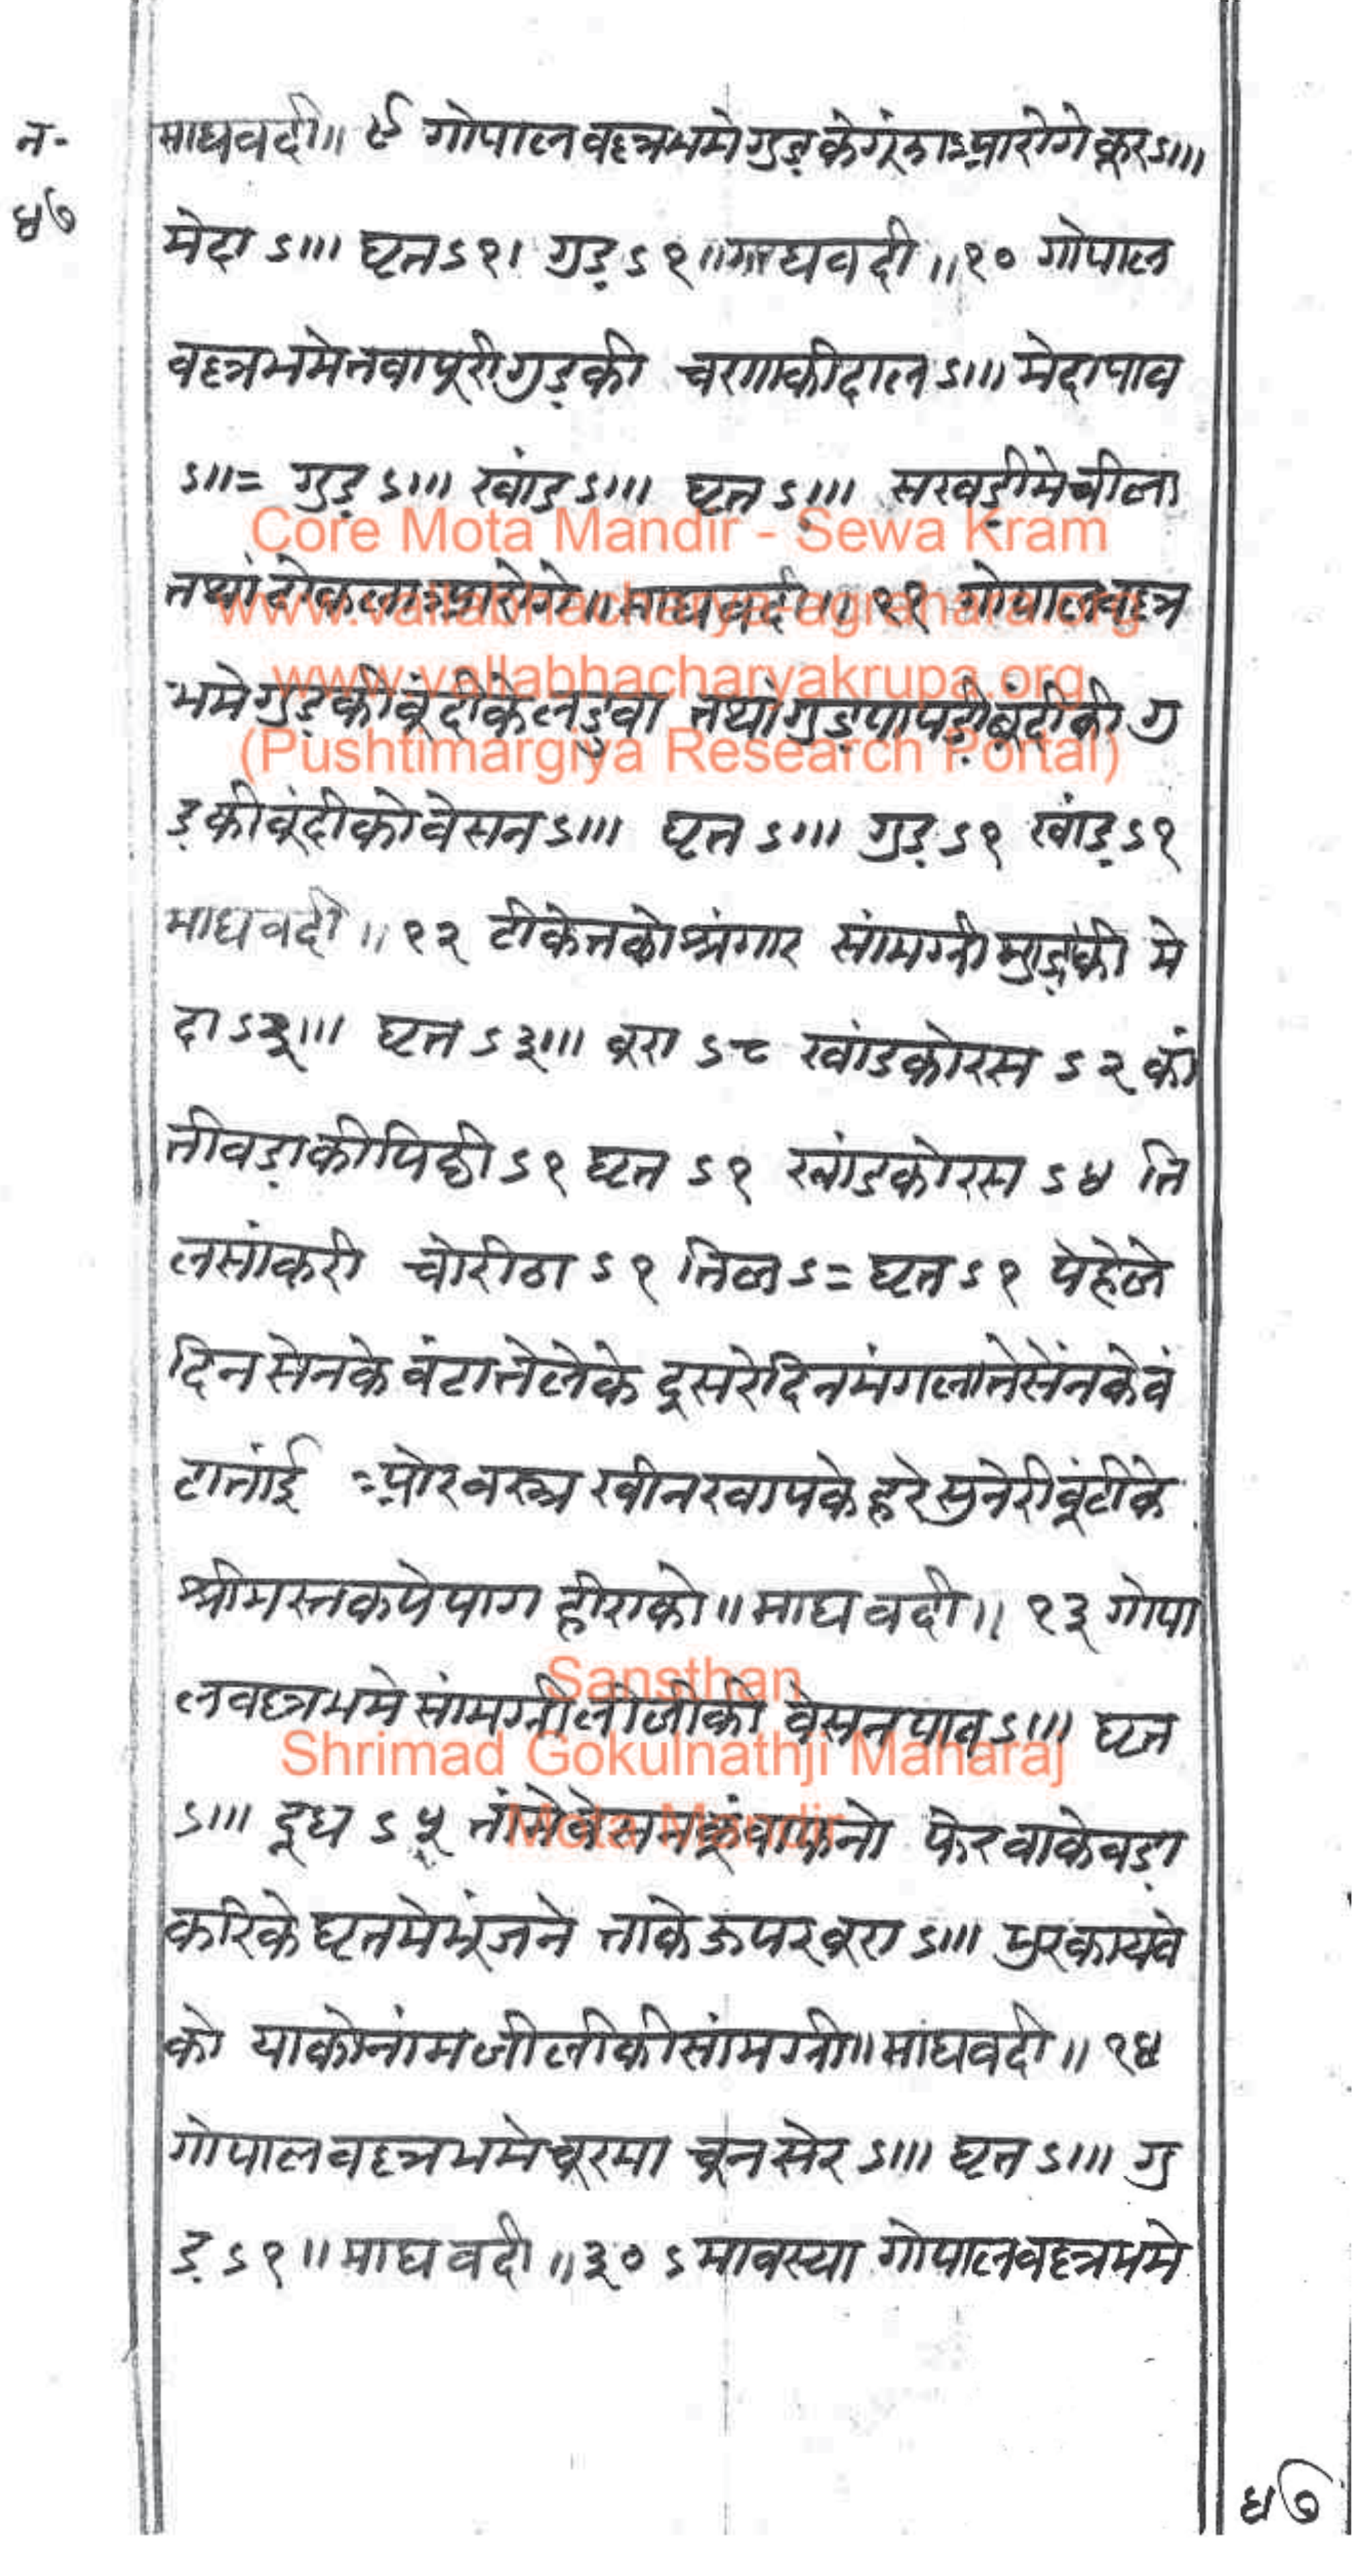 न॰
४७
माघवदी॥ ९ गोपालवल्लभमे गुड़के गूंजा आरोगे कूर ऽ।।।
मेदा ऽ।।। घृत ऽ१। गुड़ ऽ१॥ माघवदी॥ १० गोपाल
वल्लभमे तवापूरी गुड़की चणाकीदाल ऽ।।। मेदा पाव
ऽ॥= गुड़ ऽ।।। खांड़ ऽ।।। घृत ऽ।।। सखड़ीमे चीला
तथां आरोगे॥ माघवदी॥ ११ गोपालवल्ल
भमे गुड़की बूंदीके लडुवा तथा गुड़पापड़ी बूंदीकी गु
ड़की बूंदीको वेसन ऽ।।। घृत ऽ।।। गुड़ ऽ१ खांड़ ऽ१
माघवदी॥ १२ टीकेतको श्रंगार सांमग्री की मे
दा ऽ३।।। घृत ऽ३।।। बूरा ऽ८ खांडकोरस ऽ२ कां
तीवड़ाकी पिठ्ठी ऽ१ घृत ऽ१ खांडकोरस ऽ४ ति
लसांकरी चोरीठा ऽ१ तिल ऽ= घृत ऽ१ पेहेले
दिन सेनके बंटाते लेके दूसरेदिन मंगलाते सेंनके बं
टातांई ओर वस्त्र खीनखापके हरे सुनेरी बूंटीके
श्रीमस्तकपे पाग हीराको॥ माघवदी॥ १३ गोपा
लवल्लभमे सांमग्री लीजीकी वेसन पाव ऽ।।। घृत
ऽ।।। दूध ऽ५ तांमे वेसनकूं बांधनो फेर वाके वड़ा
करिके घृतमे भूंजने ताके ऊपर बूरा ऽ।।। भुरकायवे
को याको नांम जीलीकी सांमग्री॥ मांघवदी॥ १४
गोपालवल्लभमे चूरमा चून सेर ऽ।।। घृत ऽ।।। गु
ड़ ऽ१॥ माघवदी॥ ३० ऽमावस्या गोपालवल्लभमे
४७
Core Mota Mandir - Sewa Kram
www.vallabhacharya-agrahara.org
www.vallabhacharyakrupa.org
(Pushtimargiya Research Portal)
Sansthan
Shrimad Gokulnathji Maharaj
Mota Mandir